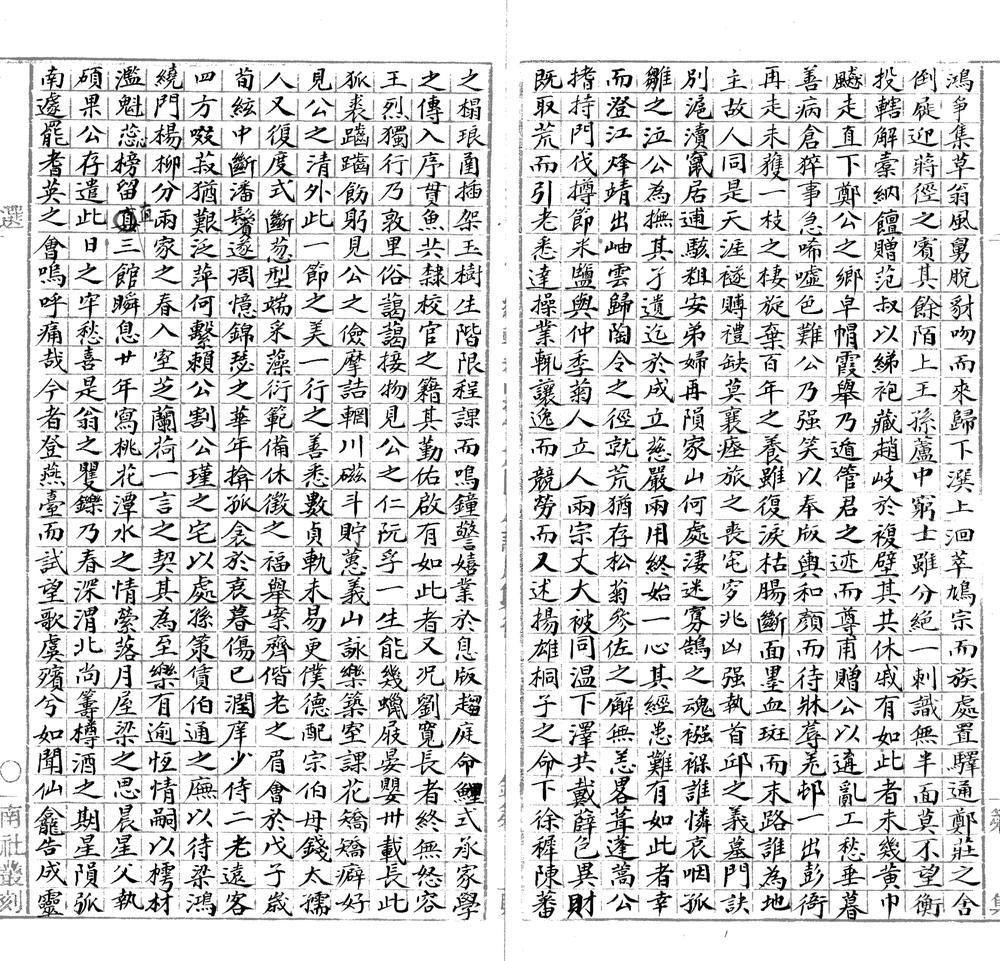 鴻爭集草翁風舅脫豺吻而來歸下潩上洄萃鳩宗而族處置驛通鄭莊之舍
倒屣迎蔣徑之賓其餘陌上王孫蘆中窮士雖分絕一刺識無半面莫不望衡
投轄解橐納饘贈范叔以綈袍藏趙岐於複壁其共休戚有如此者未幾黃巾
飈走直下鄭公之鄉皁帽霞舉乃遁管君之迹而尊甫贈公以遘亂工愁垂暮
善病倉猝事急唏噓色難公乃强笑以奉版輿和顏而待牀蓐羌邨一出彭衙
再走未獲一枝之棲旋棄百年之養雖復淚枯腸斷面墨血斑而末路誰為地
主故人同是天涯襚賻禮缺莫襄瘞旅之喪宅穸兆凶强執首邱之義墓門訣
別滬瀆竄居逋駭粗安弟婦再隕家山何處淒迷寡鵠之魂襁褓誰憐哀咽孤
雛之泣公為撫其孑遺迄於成立慈嚴兩用終始一心其經患難有如此者幸
而澄江烽靖出岫雲歸陶令之徑就荒猶存松菊參佐之廨無恙畧葺蓬蒿公
搘持門伐撙節米鹽與仲季菊人立人兩宗丈大被同溫下澤共戴薛包異財
既取荒而引老悉達操業輒讓逸而競勞而又述揚雄桐子之命下徐穉陳蕃
之榻琅圅插架玉樹生階限程課而鳴鐘警嬉業於息版趨庭命鯉式承家學
之傳入序貫魚共隸校官之籍其勤佑啟有如此者又況劉寬長者終無怒容
王烈獨行乃敦里俗藹藹接物見公之仁阮孚一生能幾蠟屐晏嬰卅載長此
狐裘躏躏飭躬見公之儉摩詰輞川磁斗貯蕙義山詠樂築室課花矯矯癖好
見公之清外此一節之美一行之善悉數貞軌未易更僕德配宗伯母錢太孺
人又復度式斷葱型端采藻衍範備休徵之福舉案齊偕老之眉會於戊子歲
荀絃中斷潘鬢遂凋憶錦瑟之華年揜孤衾於哀暮傷已潤庠少侍二老遠客
四方啜菽猶艱泛萍何繫賴公割公瑾之宅以處孫策賃伯通之廡以待梁鴻
繞門楊柳分兩家之春入室芝蘭荷一言之契其為至樂有逾恆情嗣以樗材
濫魁蕊榜留直三館瞬息廿年寫桃花潭水之情縈落月屋梁之思晨星父執
碩果公存遣此日之牢愁喜是翁之矍鑠乃春深渭北尚籌樽酒之期星隕弧
南遽罷耆英之會嗚呼痛哉今者登燕臺而試望歌虞殯兮如聞仙龕告成靈
選
南社叢刻
集